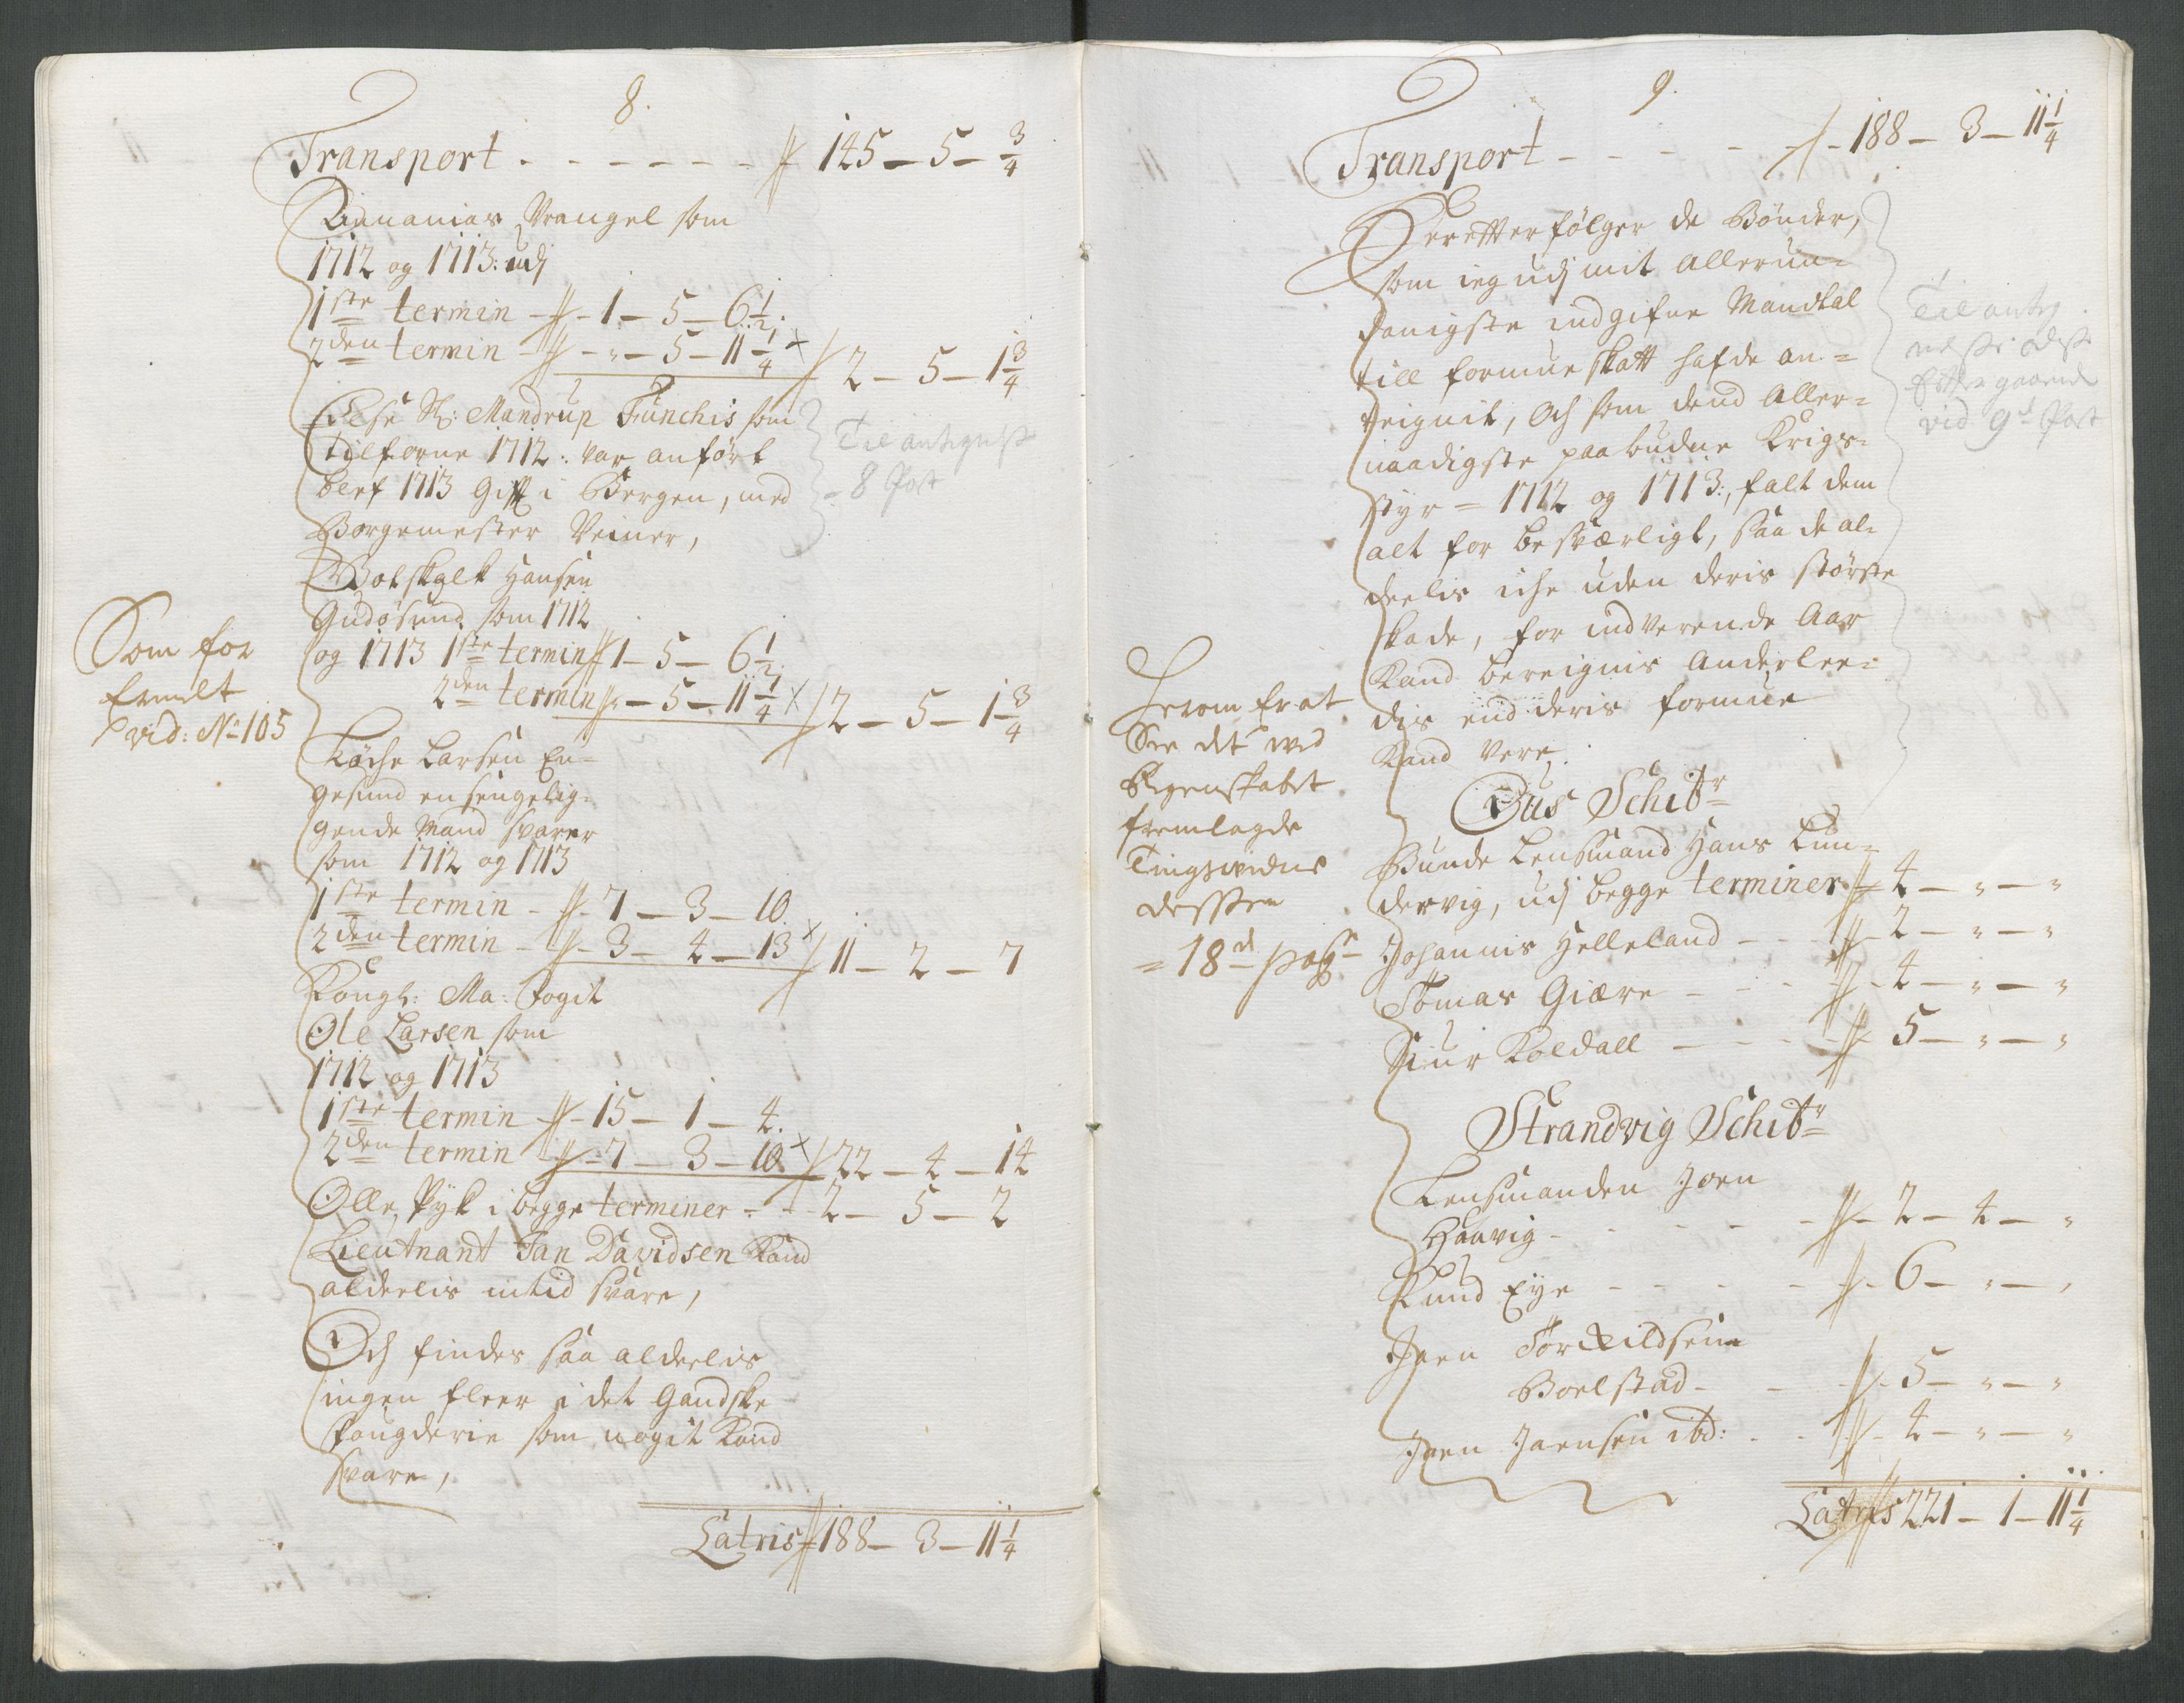 8.
Transport - - - - - - 145 - 5 - 3/4
Annanias Wrangel som
1712 og 1713: udj
1ste termin - 1 - 5 - 6 1/2.
2den termin - " - 5 - 11 1/4 x 2 - 5 - 1 3/4
Else Sl: Mandrup Funchis som
tilforne 1712: var anført
blef 1713 Gift i Bergen, med
Borgemester Weiner,
Til antignelsse
= 8 Post
Botskalk Hansen
Gudøsund som 1712
og 1713 1ste termin 1 - 5 - 6 1/2
2den termin " - 5 - 11 1/4 x 2 - 5 - 1 3/4
Som for
ermelt
vid: No 105
Larsen En-
gesund en sengelig-
gende Mand svarer
som 1712 og 1713
1ste termin - 7 - 3 - 10.
2den termin - 3 - 4 - 13 x 11 - 2 - 7
Kongl: Ma: fogit
Ole Larsen som
1712 og 1713
1ste termin - 15 - 1 - 4.
2den termin - 7 - 3 - 10 x 22 - 4 - 14
Olle Pyk i begge terminer - - 2 - 5 - 2
Lieutnant Jan Davidsen Kand
alderlis intid svare,
Och findes saa alderlis
ingen fleer i det Gandske
fougderie som nogit Kand
svare,
Latris 188 - 3 - 11 1/4
9.
Transport - - - - - 188 - 3 - 11 1/4
Herefter følger de Bønder,
som ieg udj mit allerun-
danigste indgifne Mandtal
till formue skatt hafde an-
teignit, Och som dend Aller-
naadigste paabudne Krigs-
styr = 1712 og 1713:, falt dem
alt for besværligt, saa de al-
deelis iche uden deris største
skade, for indverende Aar
Kand bereignis anderlee-
dis end deris formue
Kand vere.
Til anteg
nelsse
Efter gaaende
vid 9d Post
Herom er at
See det ved
Regenskabet
fremlagde
Tingsvidne
dessen
= 18d pag
Qus Schibr
Bunde Lensmand Hans Lun-
dervig, udj begge terminer 4 - " - "
Johannis Helleland - - 2 - " - "
Tomas Giære - - - 4 - " - "
Siur Koldall - - - 5 - " - "
Strandvig Schibr
Lensmanden Joen
Haavig - - - - 2 - 4 - "
Knud Eye - - - - 6 - " - "
Joen Torkildsen
Boelstad - - - 5 - " - "
Joen Joensen ibd: - - 4 - " - "
Latris 221 - 1 - 11 1/4